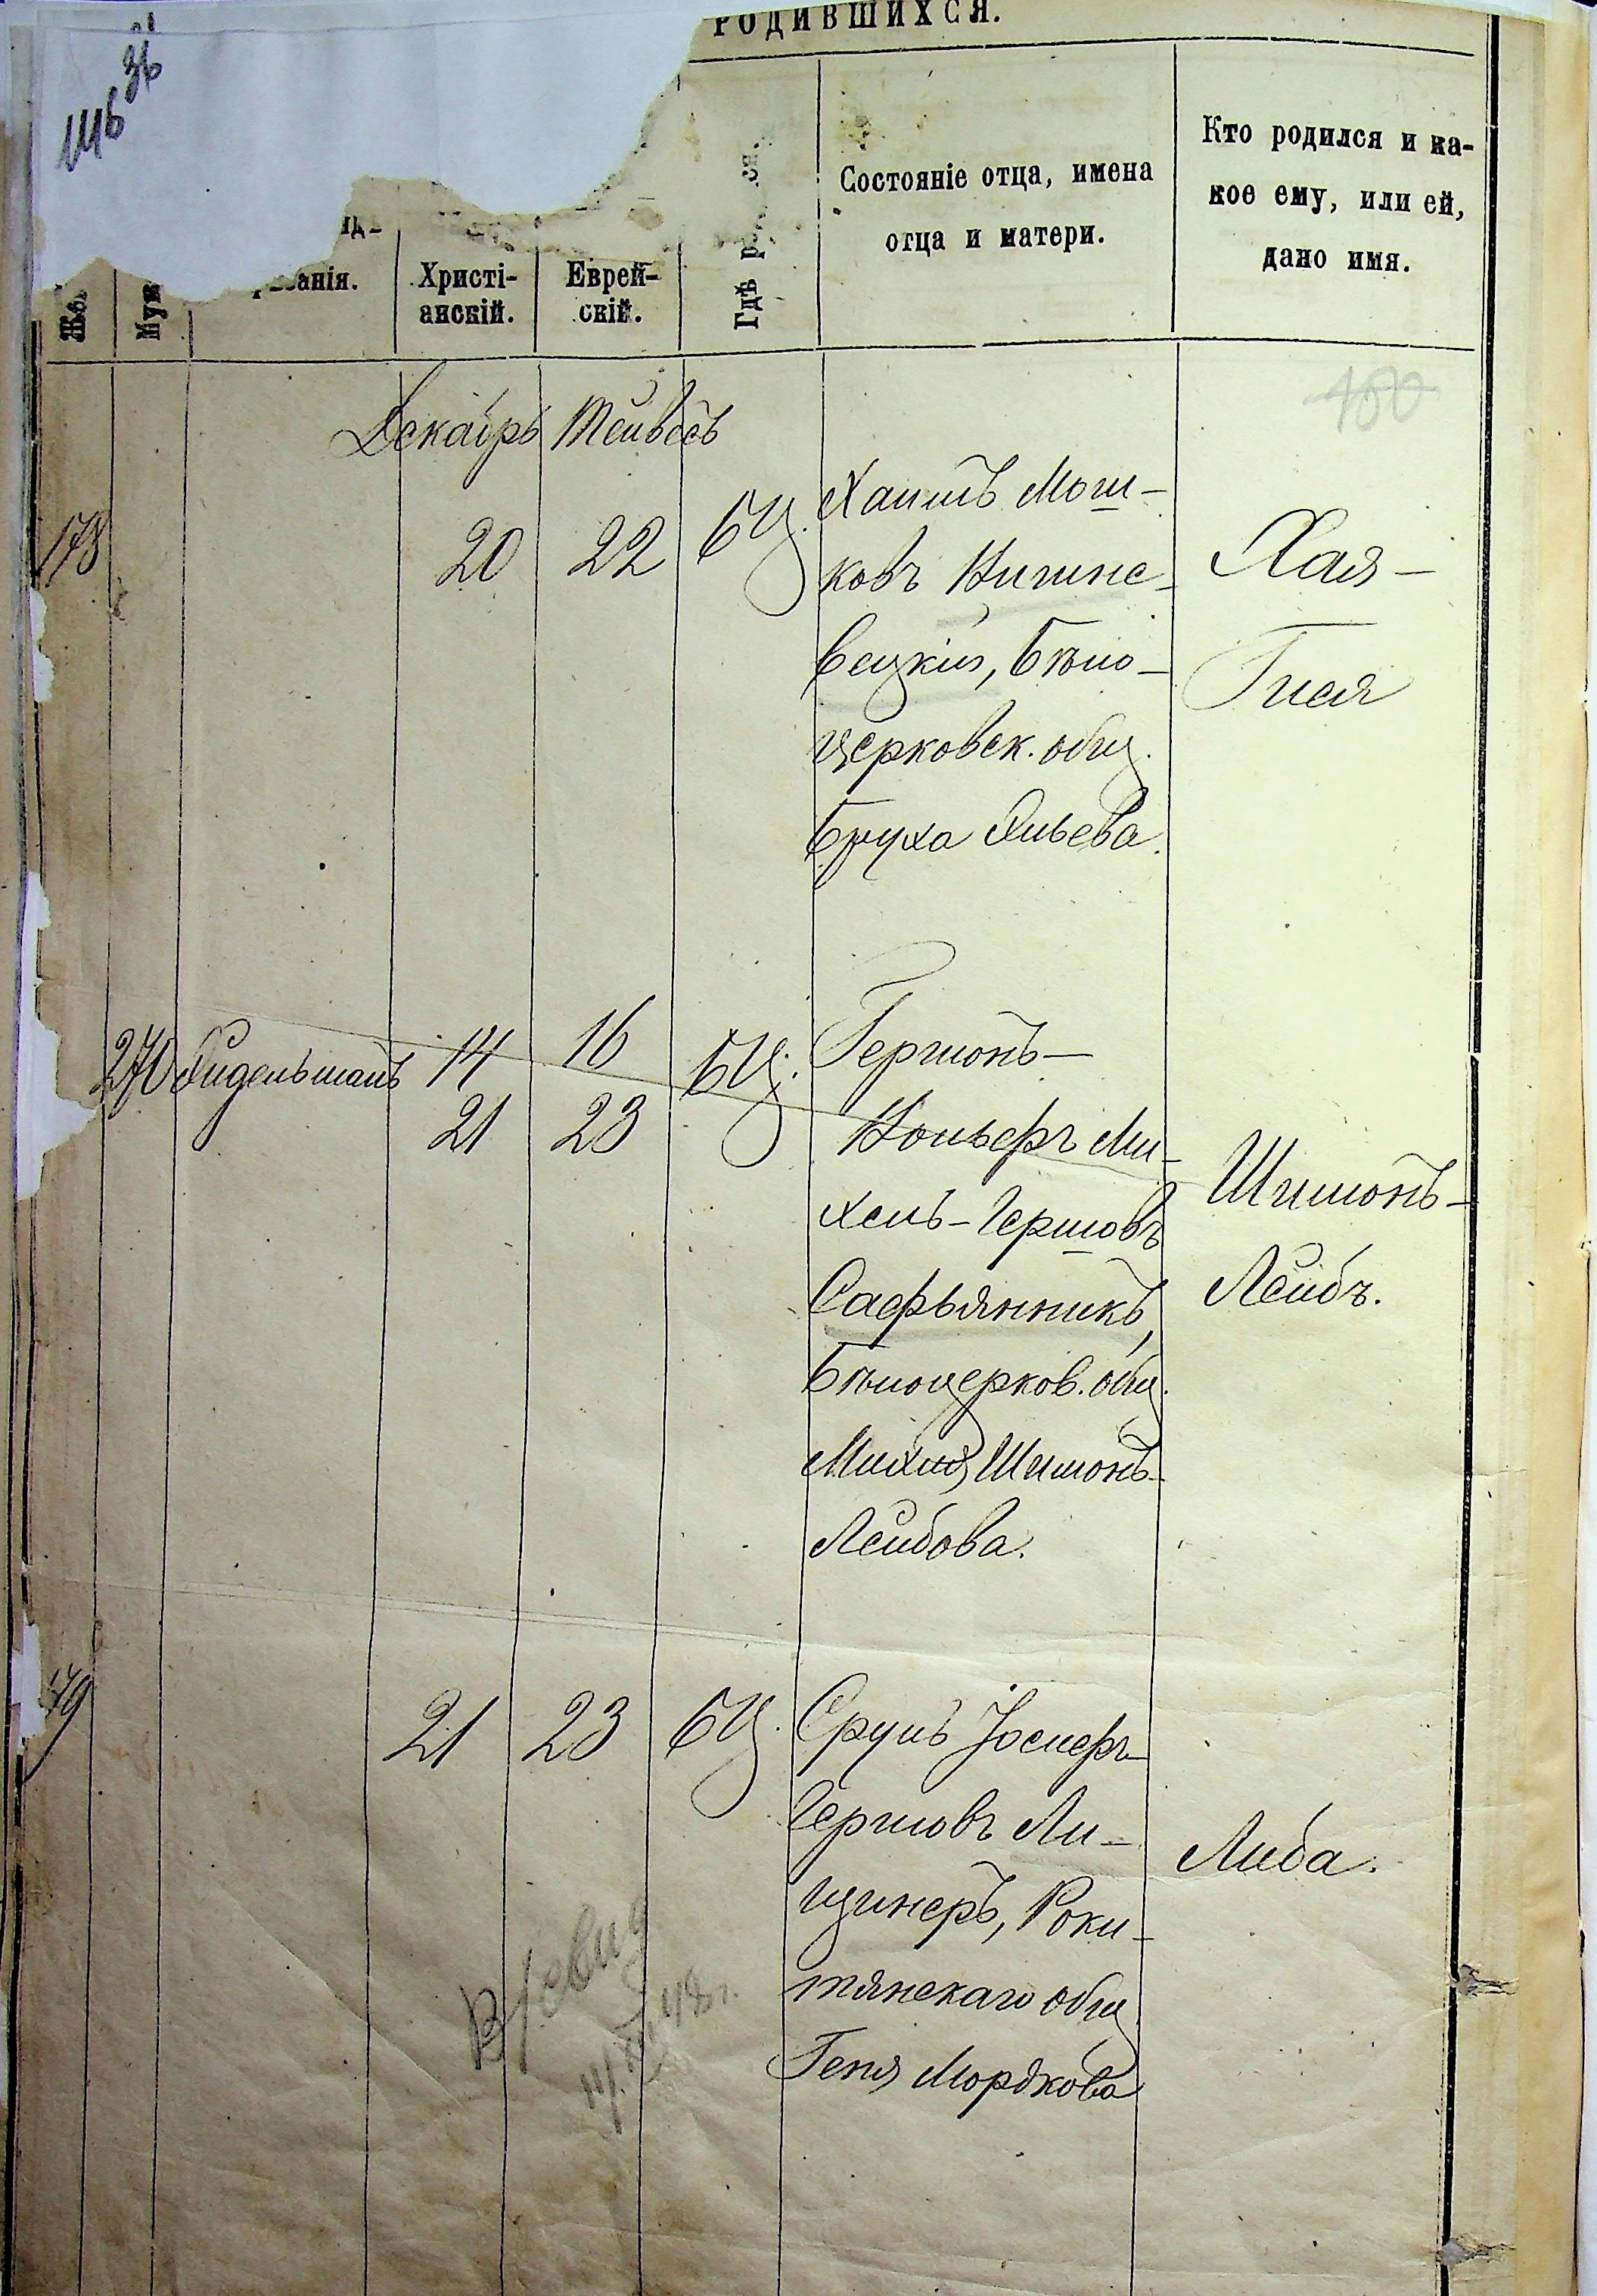 36
1116
РОДИВШИХСЯ.
Христі-
анскій.
Еврей-
скій.
Гдѣ
Состояніе отца, имена
отца и матери.
Кто родился и ка-
кое ему, или ей,
дано имя.
180
Декабрь Тейвесъ
178
20
22
БЦ.
Хаимъ Мош-
ковъ
вецкій, Бѣло-
церковск. общ.
Бруха Эльева.
Хая-
Гися
270 Эидельманъ
14
16
21
23
БЦ.
Гершонъ-
Ми-
хель-Гершовъ
Сафьянникъ,
Бѣлоцерков. общ.
Шимонъ-
Лейбова.
Шимонъ-
Лейбъ.
79
21
23
БЦ.
Сруль Іосифъ-
Гершовъ Ли-
щинеръ, Роки-
тянскаго общ.
Геня Мордкова
Либа.